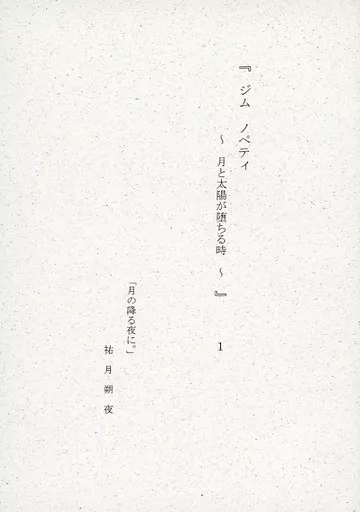 『ジム ノペティ
～ 月と太陽が堕ちる時 ～』 1
「月の降る夜に。」
祐月朔夜